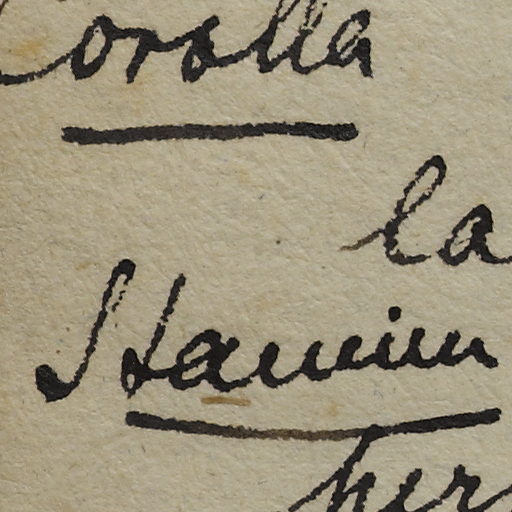 Corolla
la
Stamin
per